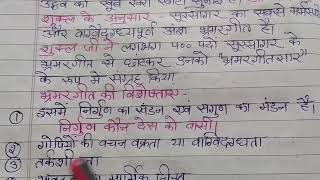 उद्धव को
शुक्ल के अनुसार सूरसागर का सबसे मर्मस्पर्शी
और वाग्वैदग्ध्यपूर्ण अंश भ्रमरगीत है।
शुक्ल जी ने लगभग ४०० पदों सूरसागर के
भ्रमरगीत से छांटकर उनको "भ्रमरगीतसार"
के रूप में संग्रह किया
भ्रमरगीत की विशेषताएं:-
① इसमें निर्गुण का खंडन एवं सगुण का मंडन है।
निर्गुण कौन देस को वासी।
② गोपियों की वचन वक्रता या वाग्विदग्धता
③